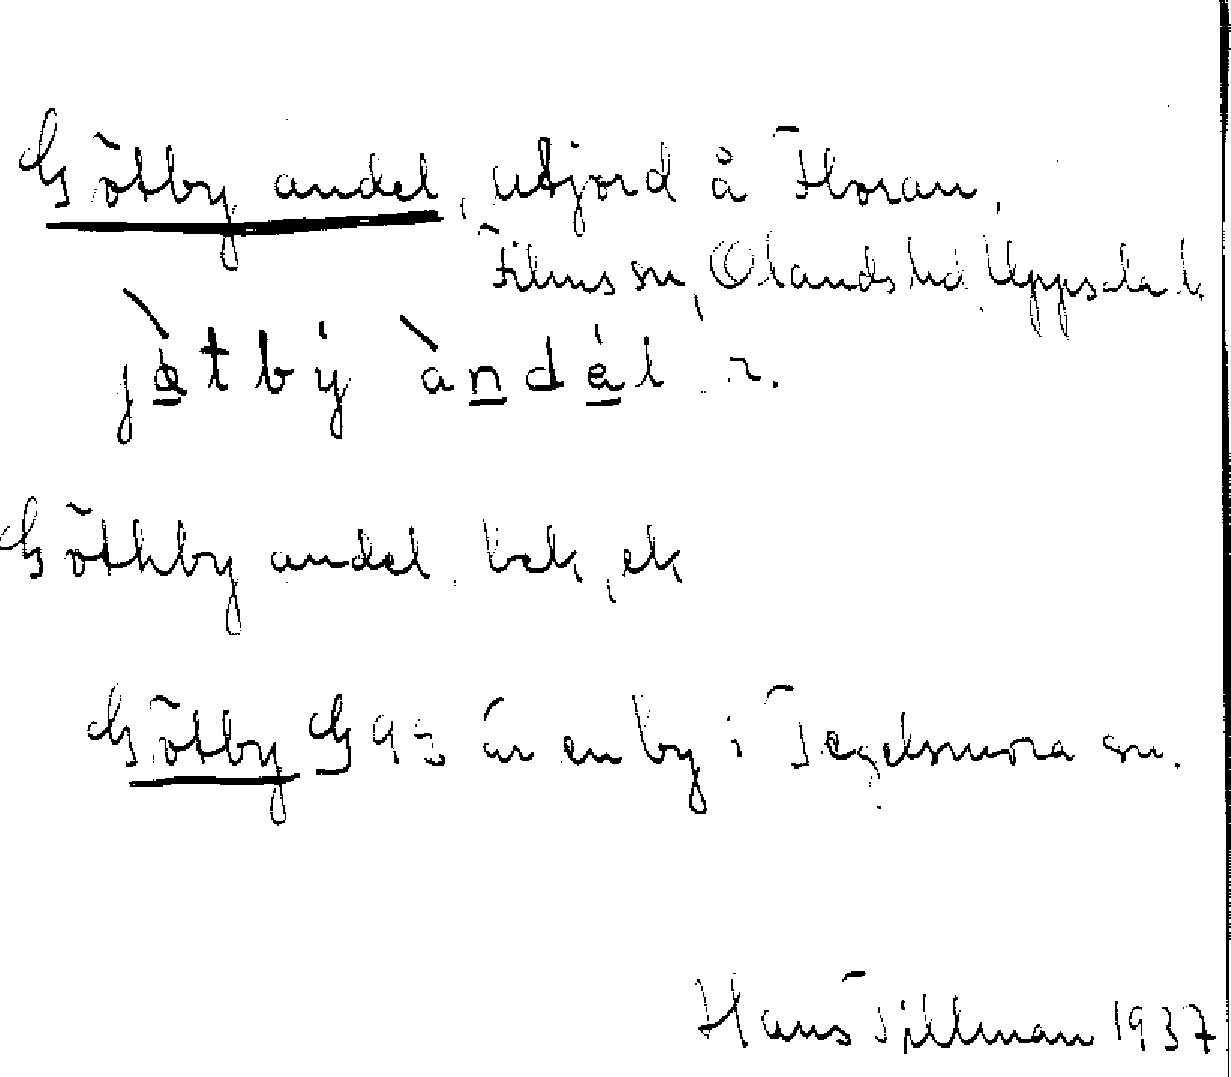 Götby andel, utjord å Floran,
Films sn, Olands hd, Uppsala l.
jötby andel
Göthby andel, bek, ek
Götby G93 är en by i Tegelsmora sn.
Hans Tillman 1937